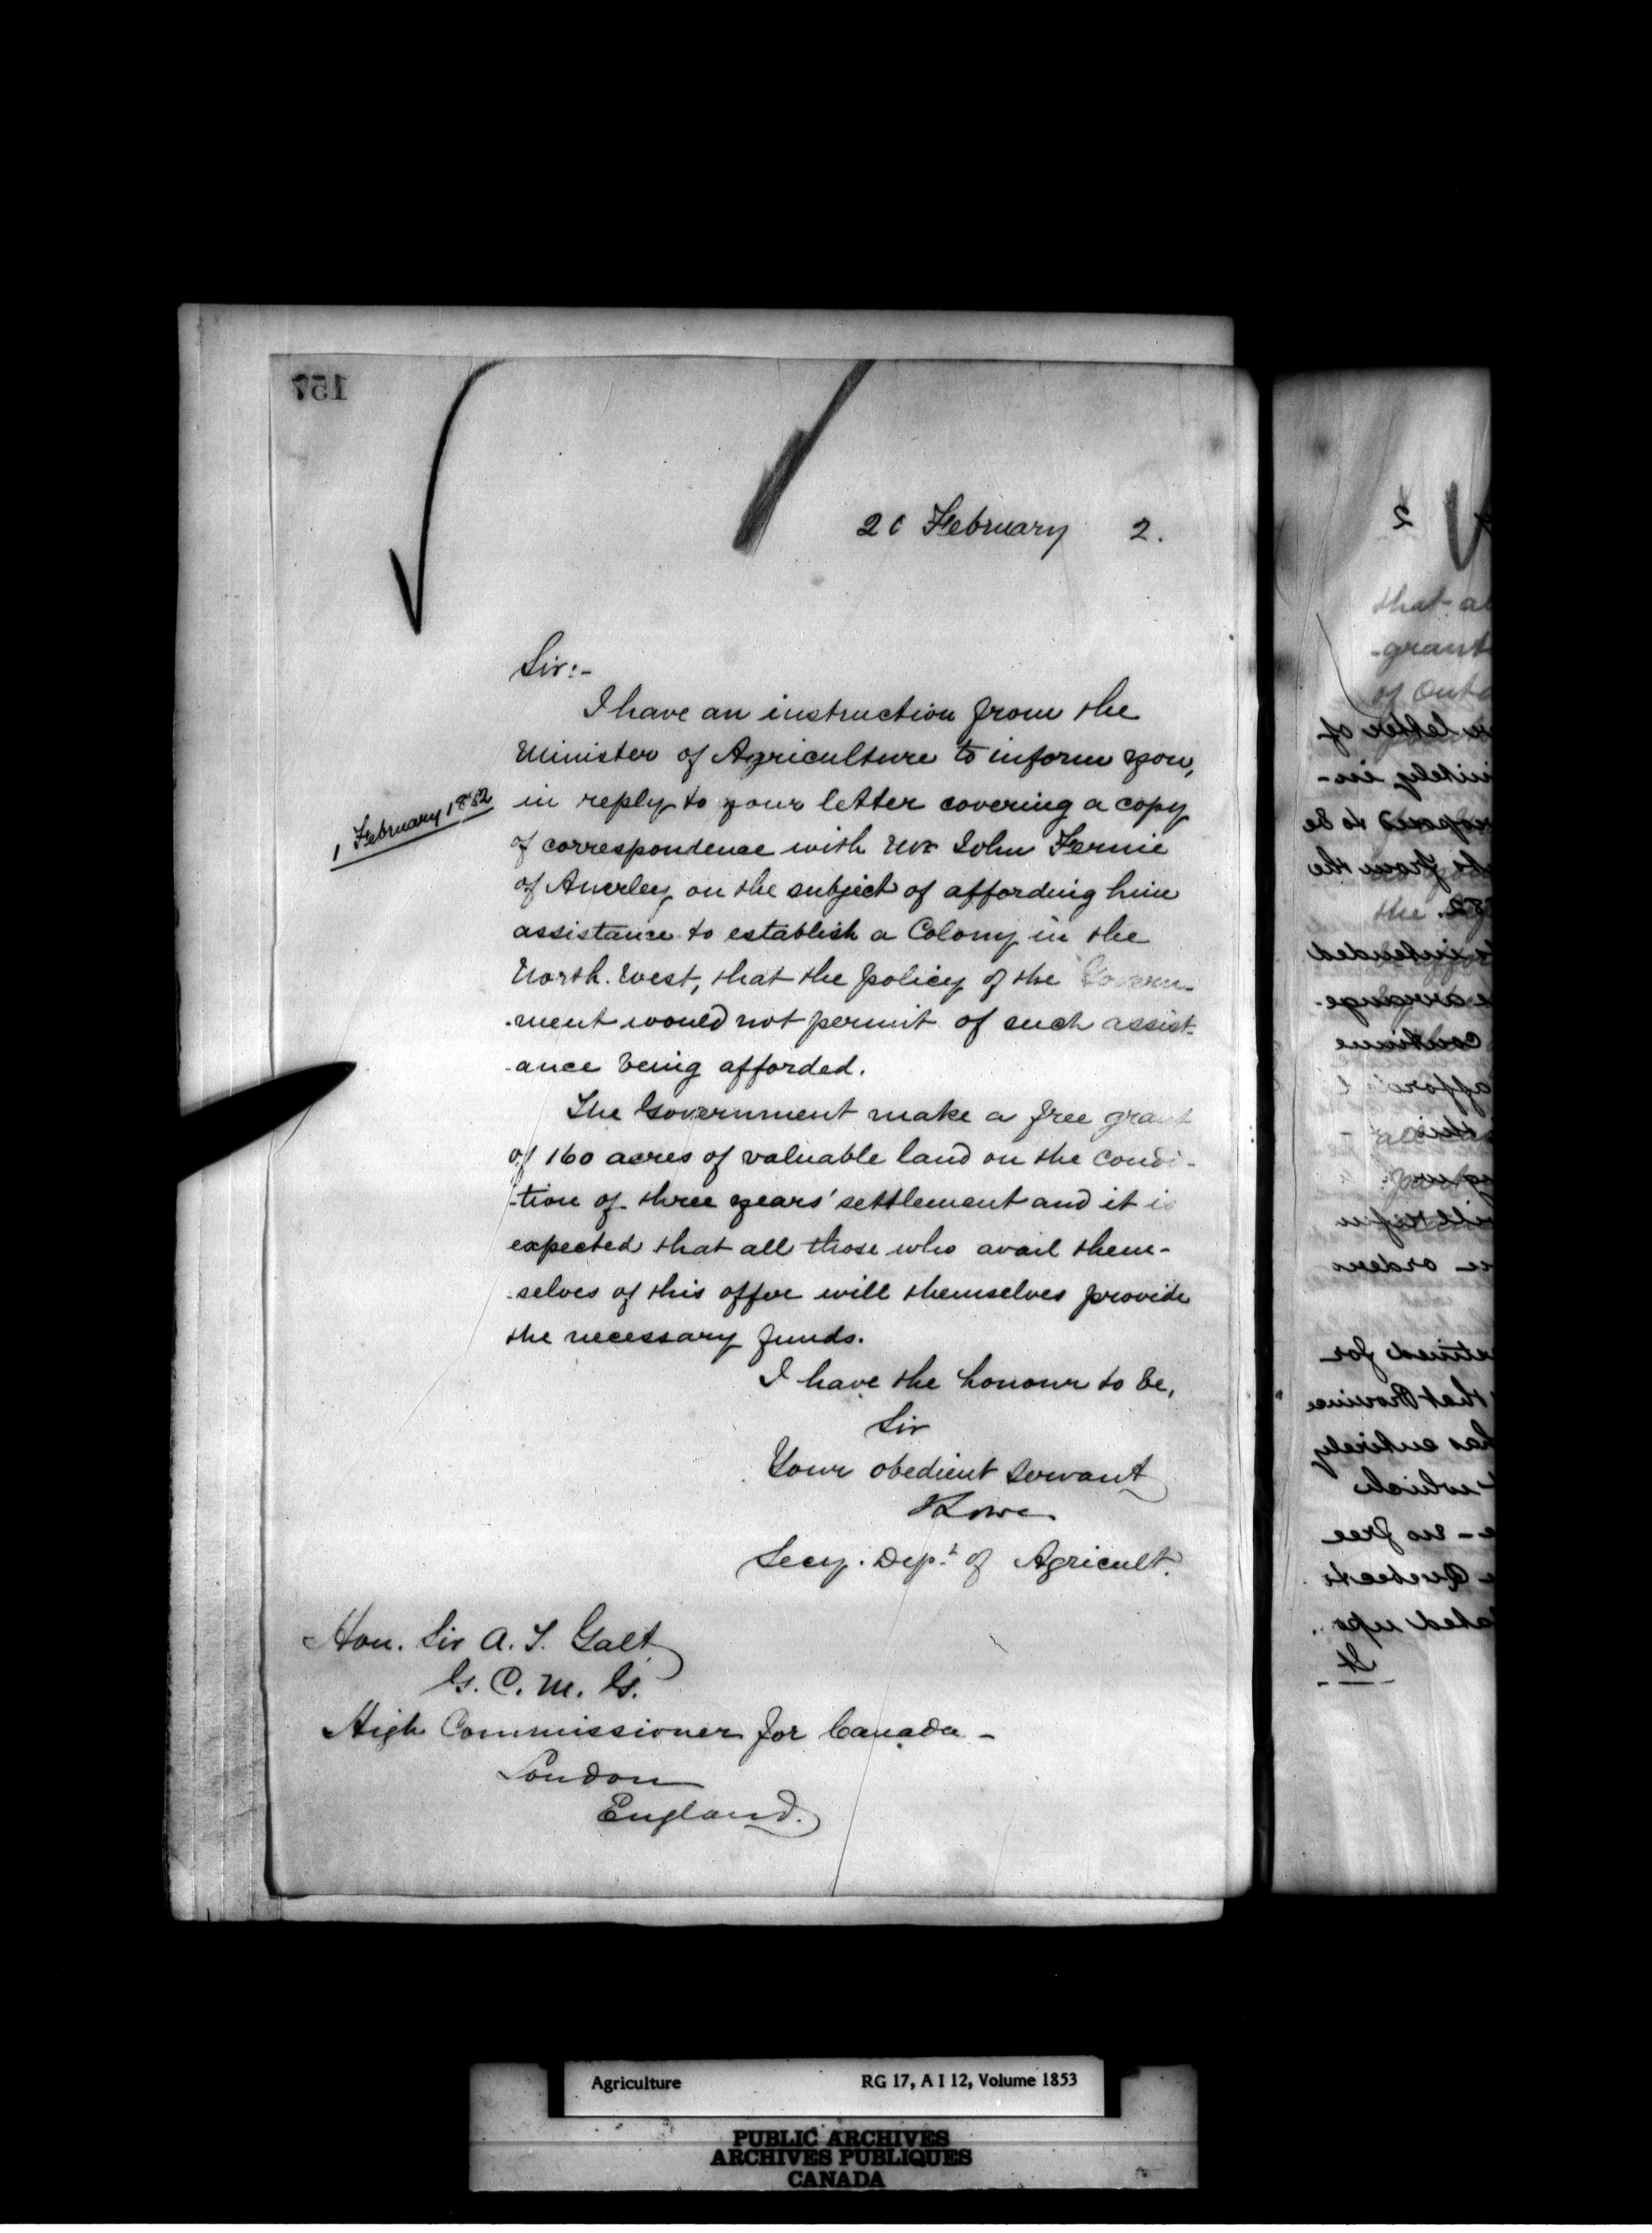 157
20 February 2.
Sir:-
I have an instruction from the
Minister of Agriculture to inform you,
1 February 1882
in reply to your letter covering a copy
of correspondence with Mr John Fernie
of Anerley on the subject of affording him
assistance to establish a Colony in the
North. West, that the policy of the Govern-
-ment would not permit of such assist-
-ance being afforded.
The Government make a free grant
of 160 acres of valuable land on the condi-
-tion of three years' settlement and it is
expected that all those who avail them-
-selves of this offer will themselves provide
the necessary funds.
I have the honour to be,
Sir
Your obedient servant
JLowe
Secy. Dept. of Agricult.
Hon. Sir A. T. Galt
G. C. M. G.
High Commissioner for Canada -
London
England.
2
that
-grant
of
letter of
in-
to be
from the
the
82.
intended
arrange-
continue
for
that Province
has entirely
which
- no free
Quebec to
upo
It
Agriculture RG 17, A I 12, Volume 1853
PUBLIC ARCHIVES
ARCHIVES PUBLIQUES
CANADA